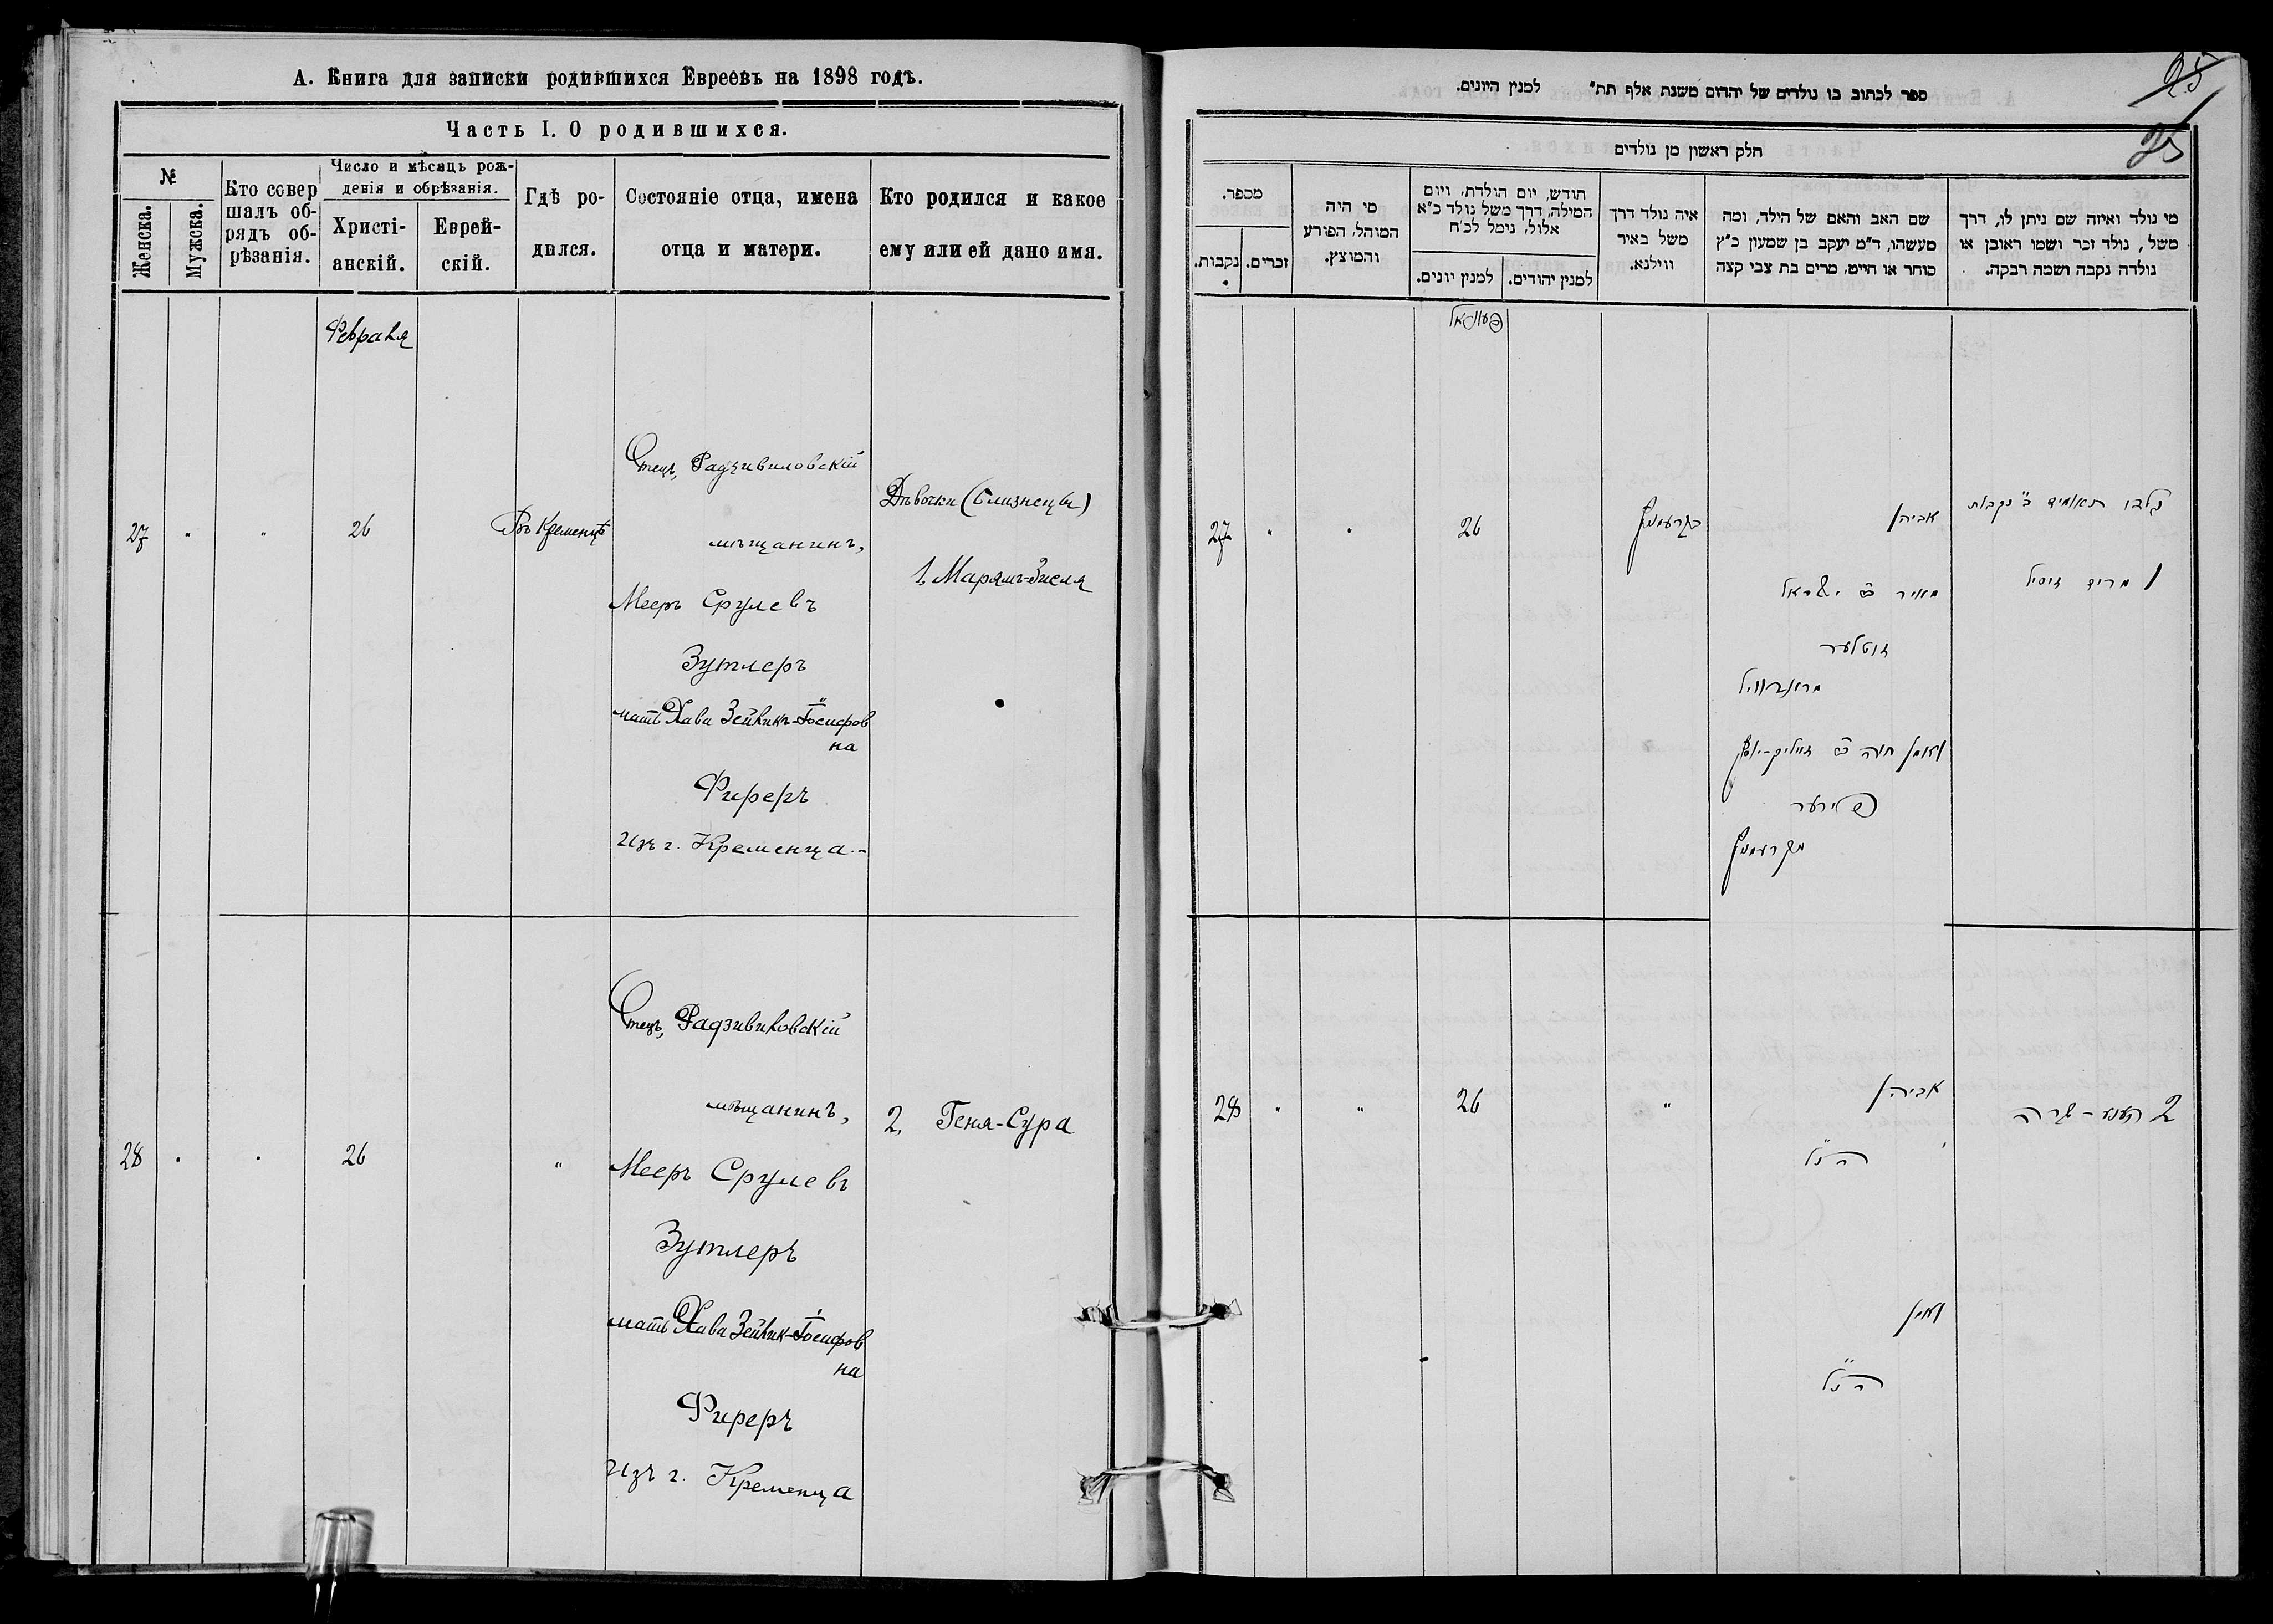 А. Книга для записки родившихся Евреевъ на 1898 годъ.
Часть I. О родившихся.
№
Женска.
Мужска.
Кто совер
шалъ об-
рядъ об-
рѣзанія.
Число и мѣсяцъ рож-
денія и обрѣзанія.
Христі-
анскій.
Еврей-
скій.
Гдѣ ро-
дился.
Состояніе отца, имена
отца и матери.
Кто родился и какое
ему или ей дано имя.
Февраля
27 " " 26
Въ Кременцѣ
Отецъ, Радзивиловскій
мѣщанинъ,
Мееръ Срулевъ
Зутлеръ
мать Хава Зейликъ-Іосифов
на
Фиреръ
Изъ г. Кременца.-
Дѣвочки (близнецы)
1. Марямъ-Зисля
28 " " 26 "
Отецъ, Радзивиловскій
мѣщанинъ,
Мееръ Срулевъ
Зутлеръ
мать Хава Зейлик-Іосифов
на
Фиреръ
Изъ г. Кременца
2, Геня-Сура
25
25
ספר לכתוב בו נולדים של יהדום משנת אלף תת״ למנין היונים.
חלק ראשון מן נולדים
מספר.
נקבות.
זכרים.
מי היה
המוהל, הפורע
והמוצץ.
חודש, יום הולדת, ויום
המילה, דרך משל נולד כ״א
אלול, נימל לכ״ח
למנין יונים.
למנין יהודים.
איה נולד דרך
משל באיר
ווילנא.
שם האב והאם של הילד, ומה
מעשהו, ד״מ יעקב בן שמעון כ״ץ
סוחר או חייט, מרים בת צבי קצה
מי נולד ואיזה שם ניתן לו, דרך
משל, נולד זכר ושמו ראובן או
נולדה נקבה ושמה רבקה.
27 " " 26
בקרעמניץ
אביהן
מאיר ב״ר ישראל
זוטלער
מראדזוויל
ואמן חוה ב״ר זייליק-יוסף
פירער
מקרעמניץ
נולדו תאומים ב׳ נקבות
1 מרים זיסיל
28 " " 26 "
אביהן
הנ״ל
ואמן
הנ״ל
2 העניע - שרה